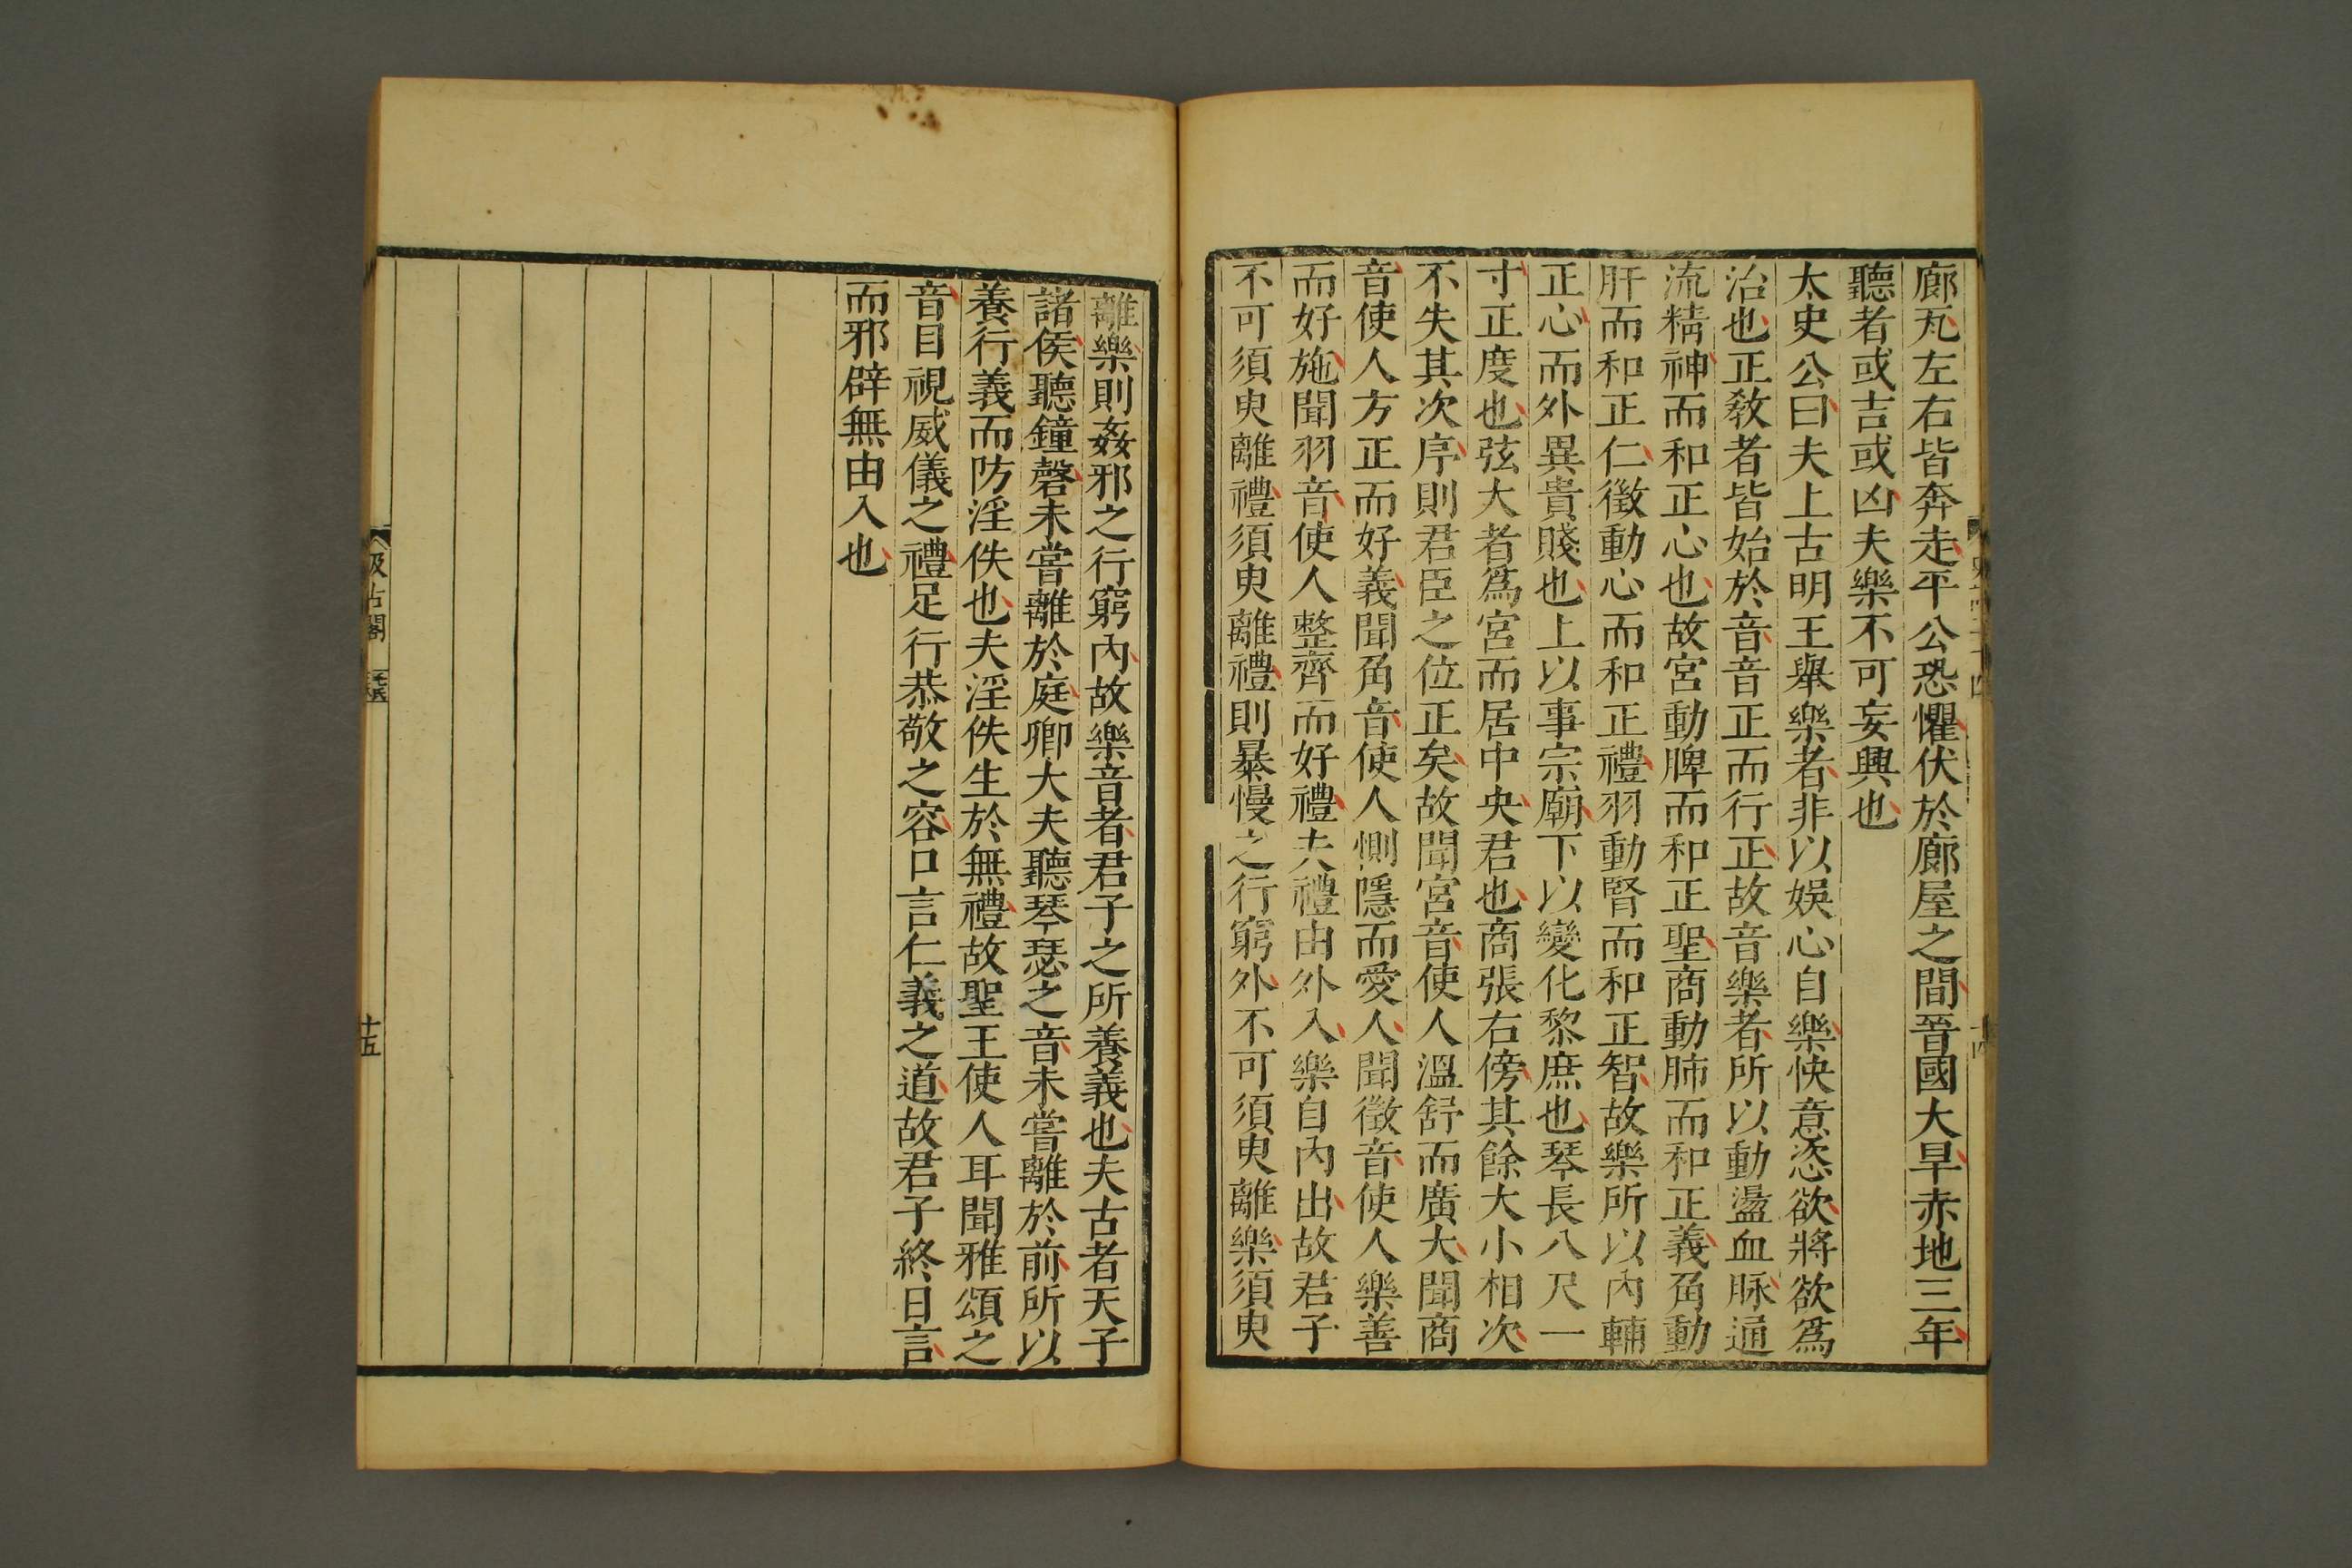 廊瓦左右皆奔走平公恐懼伏於廊屋之間晉國大旱赤地三年
聽者或吉或凶夫樂不可妄興也
太史公曰夫上古明王舉樂者非以娛心自樂快意恣欲將欲爲
治也正敎者皆始於音音正而行正故音樂者所以動盪血脉通
流精神而和正心也故宮動脾而和正聖商動肺而和正義角動
肝而和正仁徵動心而和正禮羽動腎而和正智故樂所以內輔
正心而外異貴賤也上以事宗廟下以變化黎庶也琴長八尺一
寸正度也弦大者爲宮而居中央君也商張右傍其餘大小相次
不失其次序則君臣之位正矣故聞宮音使人溫舒而廣大聞商
音使人方正而好義聞角音使人惻隱而愛人聞徵音使人樂善
而好施聞羽音使人整齊而好禮夫禮由外入樂自內出故君子
不可須臾離禮須臾離禮則暴慢之行窮外不可須臾離樂須臾
離樂則姦邪之行窮內故樂音者君子之所養義也夫古者天子
諸侯聽鐘磬未嘗離於庭卿大夫聽琴瑟之音未嘗離於前所以
養行義而防淫佚也夫淫佚生於無禮故聖王使人耳聞雅頌之
音目視威儀之禮足行恭敬之容口言仁義之道故君子終日言
而邪辟無由入也
汲古閣
十五